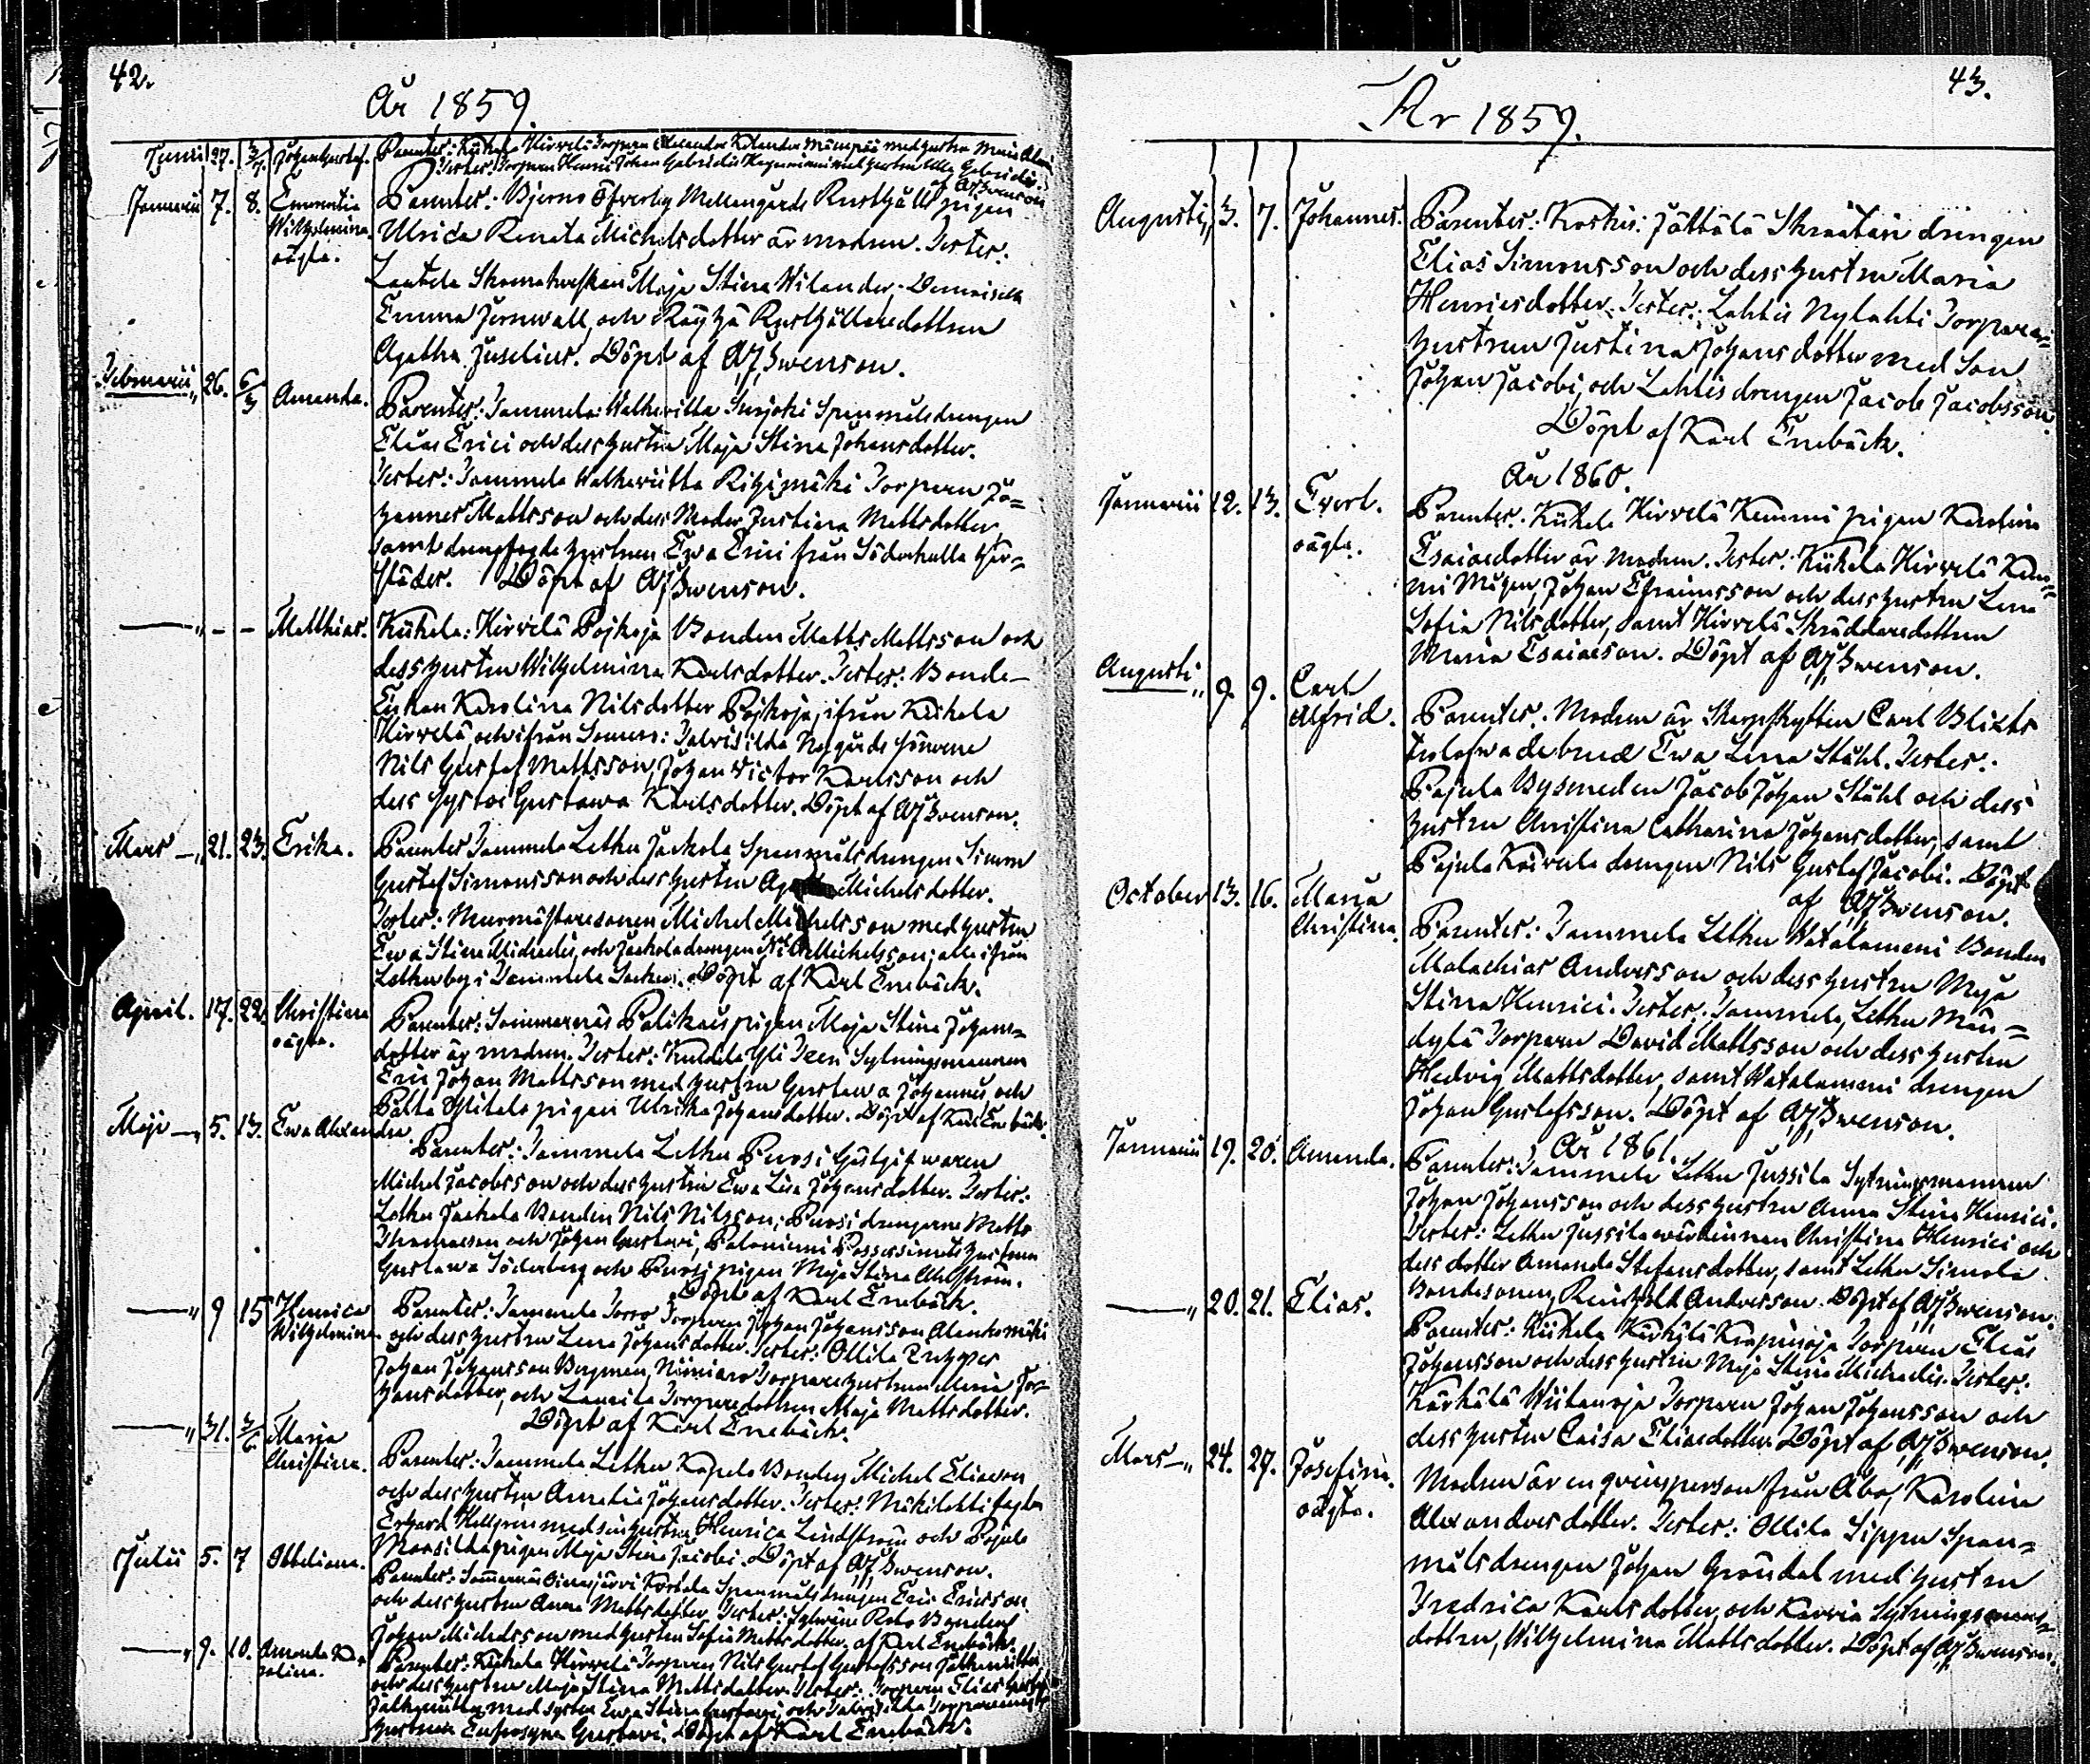 42.
År 1859.
Junii 27. 3/7. Johan Gustaf. Parentes: Kiikala Hirvelä Torparen Alexander med hustru Maria
Testes: Torparen Henric Johan Gabrielis med hustru Ulla Gabrielis.
af AJSwenson
Januarii 7. 8. Emerentia Wilhelmina. oägta. Parentes: Bjerno Öfverby Mellangårds Rusthåll pigan
Ulrica Renata Michelsdotter är modren. Testes:
Maja Stina Wilander, Demoiselle
Emma Jernwall, och Rusthållaredottren
Agatha Juselius. Döpt af AJSwenson.
Februarii „ 26. 6/3 Amanda. Parentes: Tammela: Spanmålsdrengen
Elias Erici och dess hustru Maja Stina Johansdotter.
Testes: Tammela Torparen Jo=
hannes Mattsson och dess Moder Justina Mattsdotter,
samt hustrun Ewa Erici från
Döpt af AJSwenson.
— „ - - Matthias. Kiikala: Hirvelä Pojkoja Bonden Matts Mattsson och
dess hustru Wilhelmina Karlsdotter. Testes: Bonde-
Enkan Karolina Nilsdotter Pojkoja, ifrån Kiikala
Hirvelä, och ifrån Somero: Talvisilta Nygårds
Nils Gustaf Mattsson, Johan Victor Karlsson och
dess syster Gustawa Karlsdotter. Döpt af AJSwenson.
Mars — „ 21. 23. Erika. Parentes Tammela Letku Jaekola Spanmålsdrengen Simon
Gustaf Simonsson och dess hustru Michelsdotter.
Testes: Murmästaresonen Michel Michelsson med hustru
Ewa Stina Michaelis, och Jaekola drengen Michelsson; alla ifrån
Letku by i Tammela Socken. Döpt af Karl Enebäck.
April. 17. 22. Christina oägta. Parentes: Sommarnäs Palikais pigan Maja Stina Johans=
dotter är modren. Testes: Yli Sytningsmannen
Eric Johan Mattsson med hustru Gustawa Johannis, och
pigan Ulrika Johansdotter. Döpt af Karl Enebäck.
Maji — „ 5. 13. Ewa Alexandra. Parentes: Tammela Letku Purosi Gästgifwaren
Michel Jacobsson och dess hustru Ewa Lisa Johansdotter. Testes:
Letku Jaekola Bonden Nils Nilsson; Purosi drengarne Matts
Thomasson och Johan Gustavi, Possessionats hustrun
Gustawa Söderberg och Purosi pigan Maja Stina Ahlström.
Döpt af Karl Enebäck.
— „ 9 15 Henrica Wilhelmina Parentes: Tammela Torro Torparen Johan Johansson
och dess hustru Lena Johansdotter. Testes: Ollila
Johan Johansson Bergman, Torpare hustrun Maria Jo-
hansdotter, och Torparedottren Maja Mattsdotter.
Döpt af Karl Enebäck.
— „ 31. 3/6. Maria Christina. Parentes: Tammela Letku Bonden Michel Eliasson
och dess hustru Amalia Johansdotter. Testes:
Erhard Hellgren med sin hustru Henrica Lindström och
pigan Maja Stina Jacobi. Döpt af AJSwenson.
Julii 5. 7 Ottiliana. Parentes: Sommernäs Oinasjärvi Spanmålsdrengen Eric Ericsson
och dess hustru Anna Mattsdotter. Testes: Bonden
Johan Michelsson med hustru Sofia Mattsdotter. af Karl Enebäck.
— „ 9. 10. Amanda Ka=rolina. Parentes: Kiikala Hirvelä Torparen Nils Gustaf Gustafsson
och dess hustru Maja Stina Mattsdotter. Testes: Torparen Elias
med syster Ewa Stina Gustavi, och
hustrun Eufrosyna Gustavi. Döpt af Karl Enebäck.
43.
År 1859.
Augusti „ 3. 7. Johannes. Parentes: Koskis: drengen
Elias Simonsson och dess hustru Maria
Henricsdotter. Testes: Lahtis Nylahti Torpare=
hustrun Justina Johansdotter med Son
Johan Jacobi, och Lahtis drengen Jacob Jacobsson.
Döpt af Karl Enebäck.
År 1860.
Januarii 12. 13. Evert. oägta. Parentes: Kiikala Hirvelä Kemmi pigan Karolina
Esaiasdotter är modren. Testes: Kiikala Hirvelä
Johan Efraimsson och dess hustru Lena
Sofia Nilsdotter, samt Hirvelä Skräddaredottren
Maria Esaiasson. Döpt af AJSwenson.
Augusti „ 9. 9. Carl Alfrid. Parentes: Modren är Skarpskytten Carl
trolofwade brud Ewa Lena Ståhl. Testes:
Pajula Bysmeden Jacob Johan Ståhl och dess
hustru Christina Catharina Johansdotter, samt
Pajula drengen Nils Gustaf Jacobi. Döpt
af AJSwenson.
October 13. 16. Maria Christina. Parentes: Tammela Letku Watalammi Bonden
Malachias Andersson och dess hustru Maja
Stina Henrici. Testes: Tammela, Letku Män=
dylä Torparen David Mattsson och dess hustru
Hedvig Mattsdotter, samt Watalammi drengen
Johan Gustafsson. Döpt af AJSwenson.
År 1861.
Januarii 19. 20. Amanda. Parentes: Tammela Letku Jussila Sytningsmannen
Johan Johansson och dess hustru Anna Stina Henrici.
Testes: Letku Jussila wärdinnan Christina Henrici och
dess dotter Amanda Stefansdotter, samt Letku Simola
Bondesonen, Reinhold Andersson. Döpt af AJSwenson.
— „ 20. 21. Elias. Parentes: Kiikala Kärkälä Torparen Elias
Johansson och dess hustru Maja Stina Michaelis. Testes:
Kärkälä Torparen Johan Johansson och
dess hustru Caisa Eliasdotter. Döpt af AJSwenson.
Mars — „ 24. 27. Josefina. oägta. Modren är en qvinsperson från Åbo, Karolina
Alexandersdotter. Testes: Ollila Span=
målsdrengen Johan Gröndal med hustru
Fredrica Karlsdotter, och Sytningsmans=
dottren, Wilhelmina Mattsdotter. Döpt af AJSwenson.